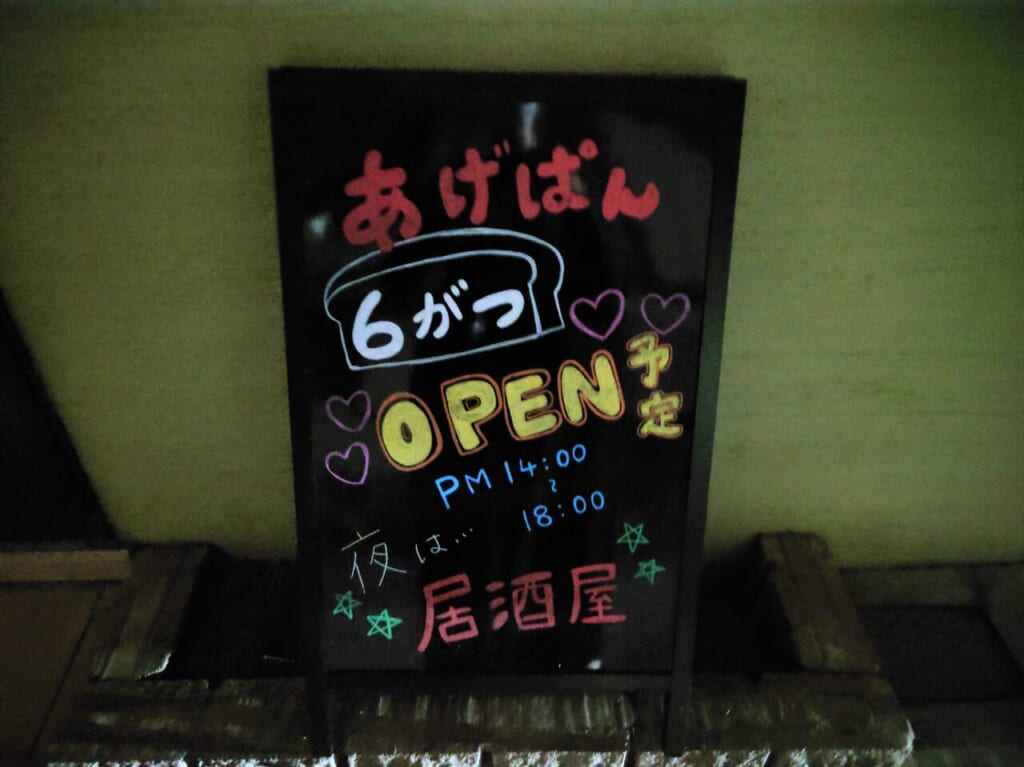 あげぱん
6がつ
OPEN予定
PM14:00
~
18:00
夜は…
居酒屋